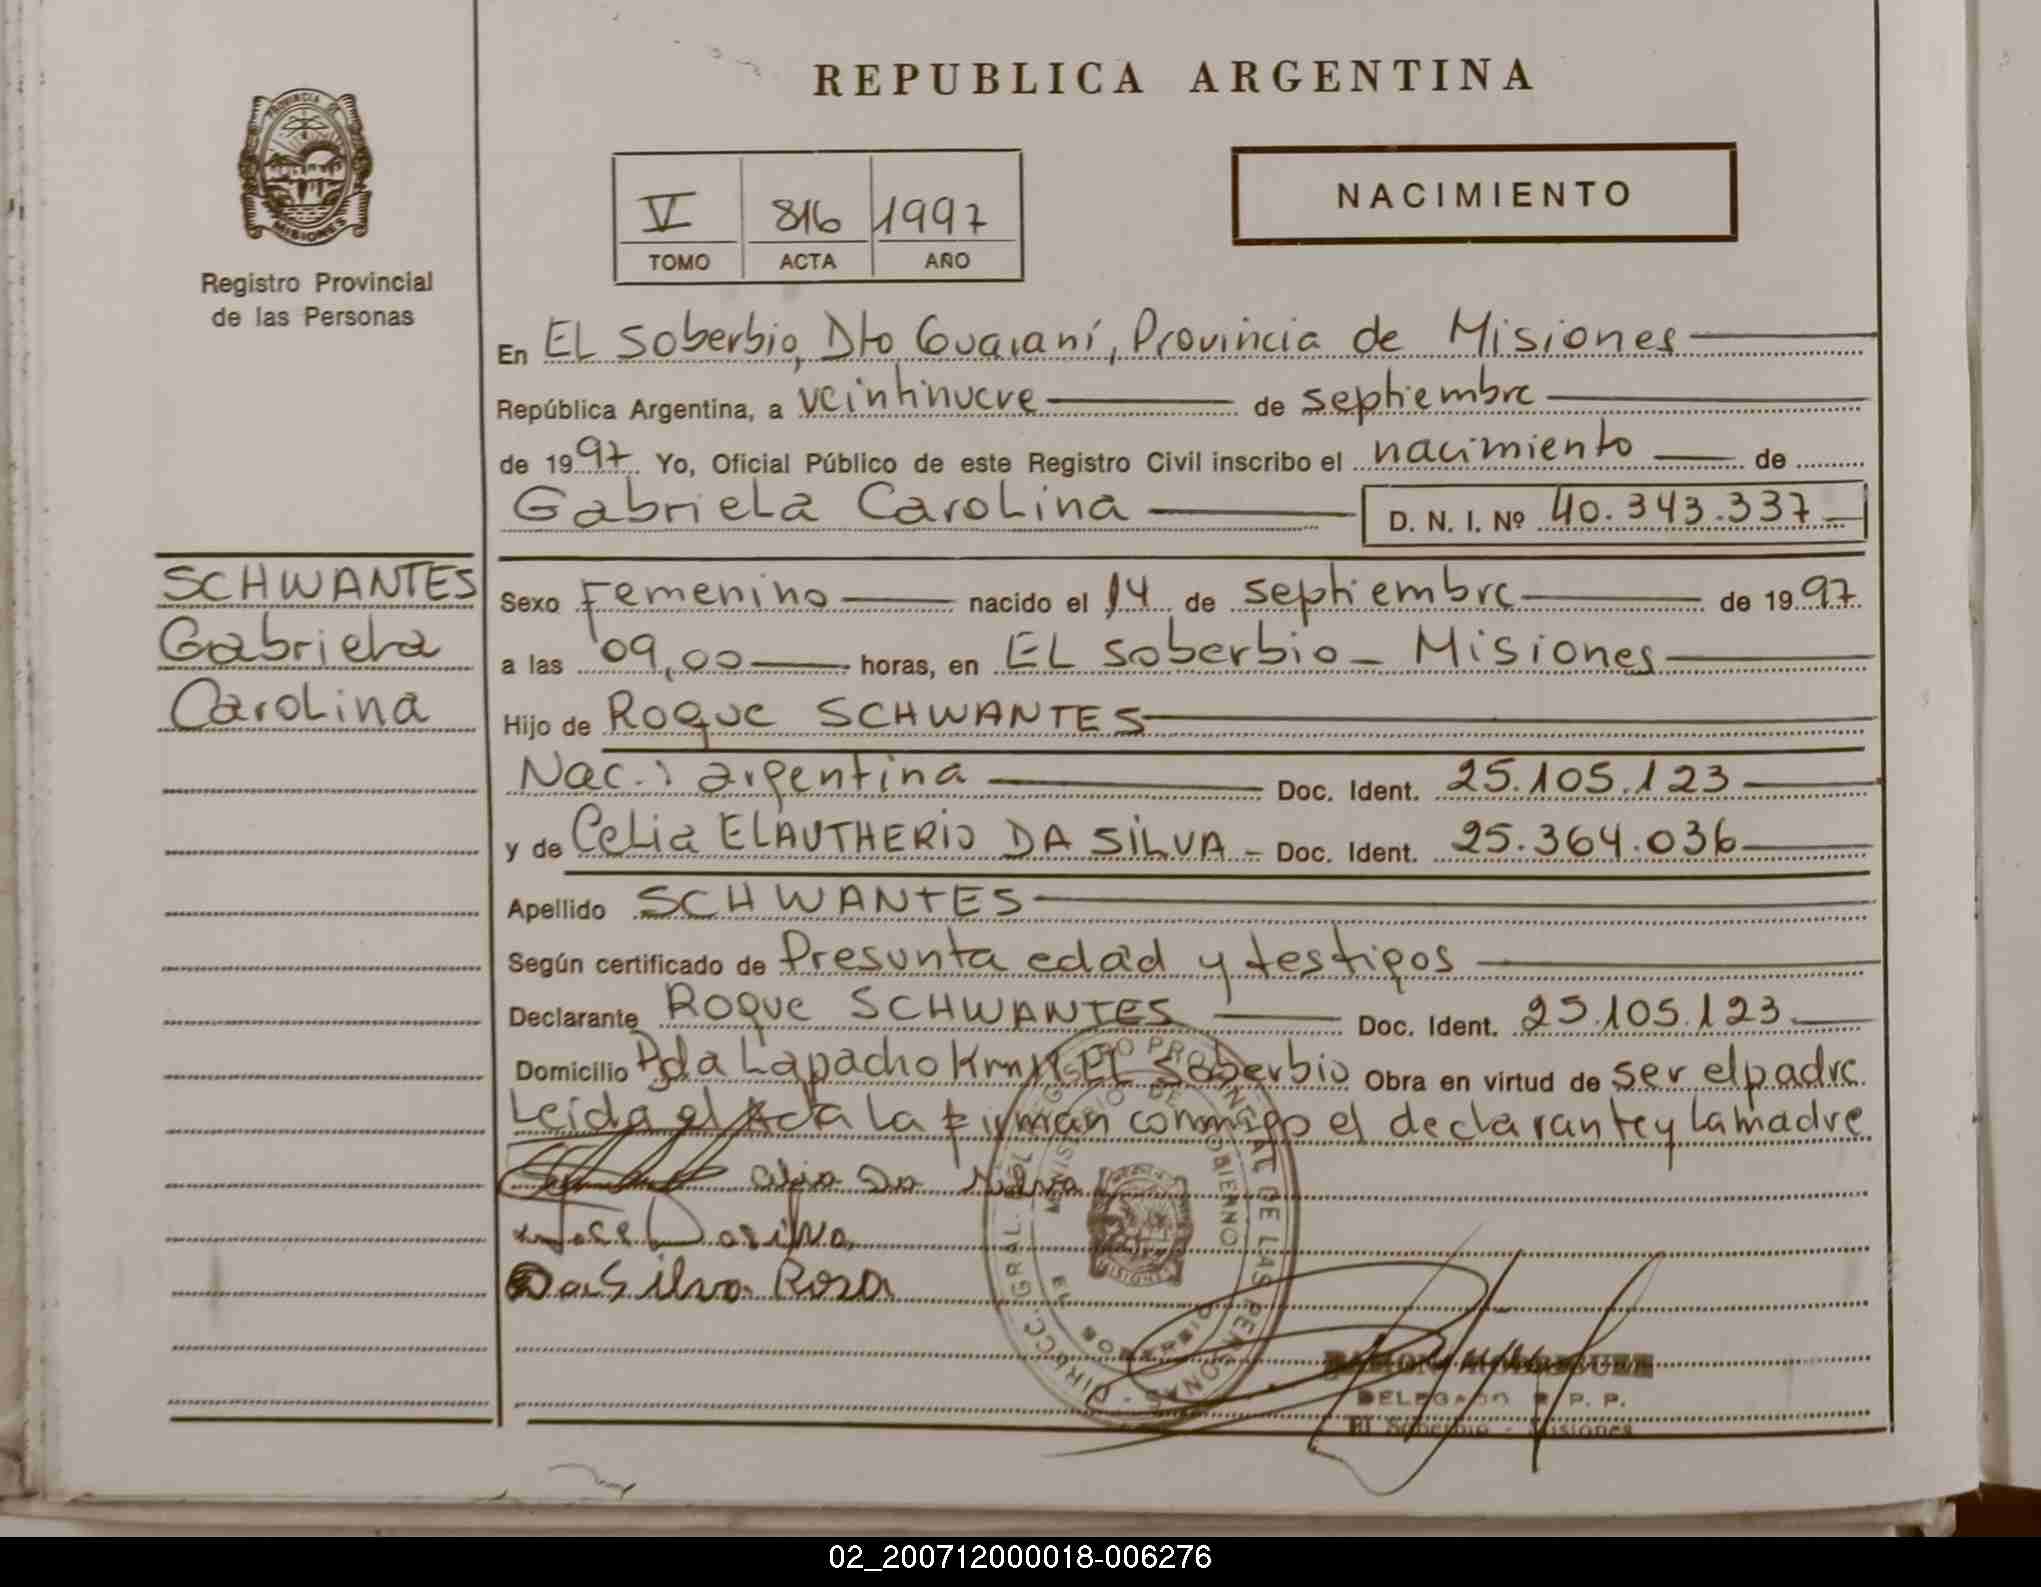 REPUBLICA ARGENTINA
PROVINCIA DE
MISIONES
Registro Provincial
de las Personas
V 816 1997
TOMO ACTA AÑO
NACIMIENTO
En EL Soberbio, Dto Guaraní, Provincia de Misiones
República Argentina, a veintinueve de septiembre
de 1997 Yo, Oficial Público de este Registro Civil inscribo el nacimiento de
Gabriela Carolina D. N. I. Nº 40.343.337
SCHWANTES
Gabriela
Carolina
Sexo Femenino nacido el 14 de septiembre de 1997
a las 09,00 horas, en EL Soberbio - Misiones
Hijo de Roque SCHWANTES
Nac.: argentina Doc. Ident. 25.105.123
y de Celia ELAUTHERIO DA SILVA - Doc. Ident. 25.364.036
Apellido SCHWANTES
Según certificado de Presunta edad y testigos
Declarante Roque SCHWANTES Doc. Ident. 25.105.123
Domicilio Pda Lapacho Km EL Soberbio Obra en virtud de ser el padre
Leida el Acta La firman conmigo el declarante y La madre
Da Silva
Jose Dasilva
Da Silva Rosa
DIRECC. GRAL. DEL REGISTRO PROVINCIAL DE LAS PERSONAS
MINISTERIO DE GOBIERNO
MISIONES
DELEGADO R. P. P.
El Soberbio - Misiones
02_200712000018-006276